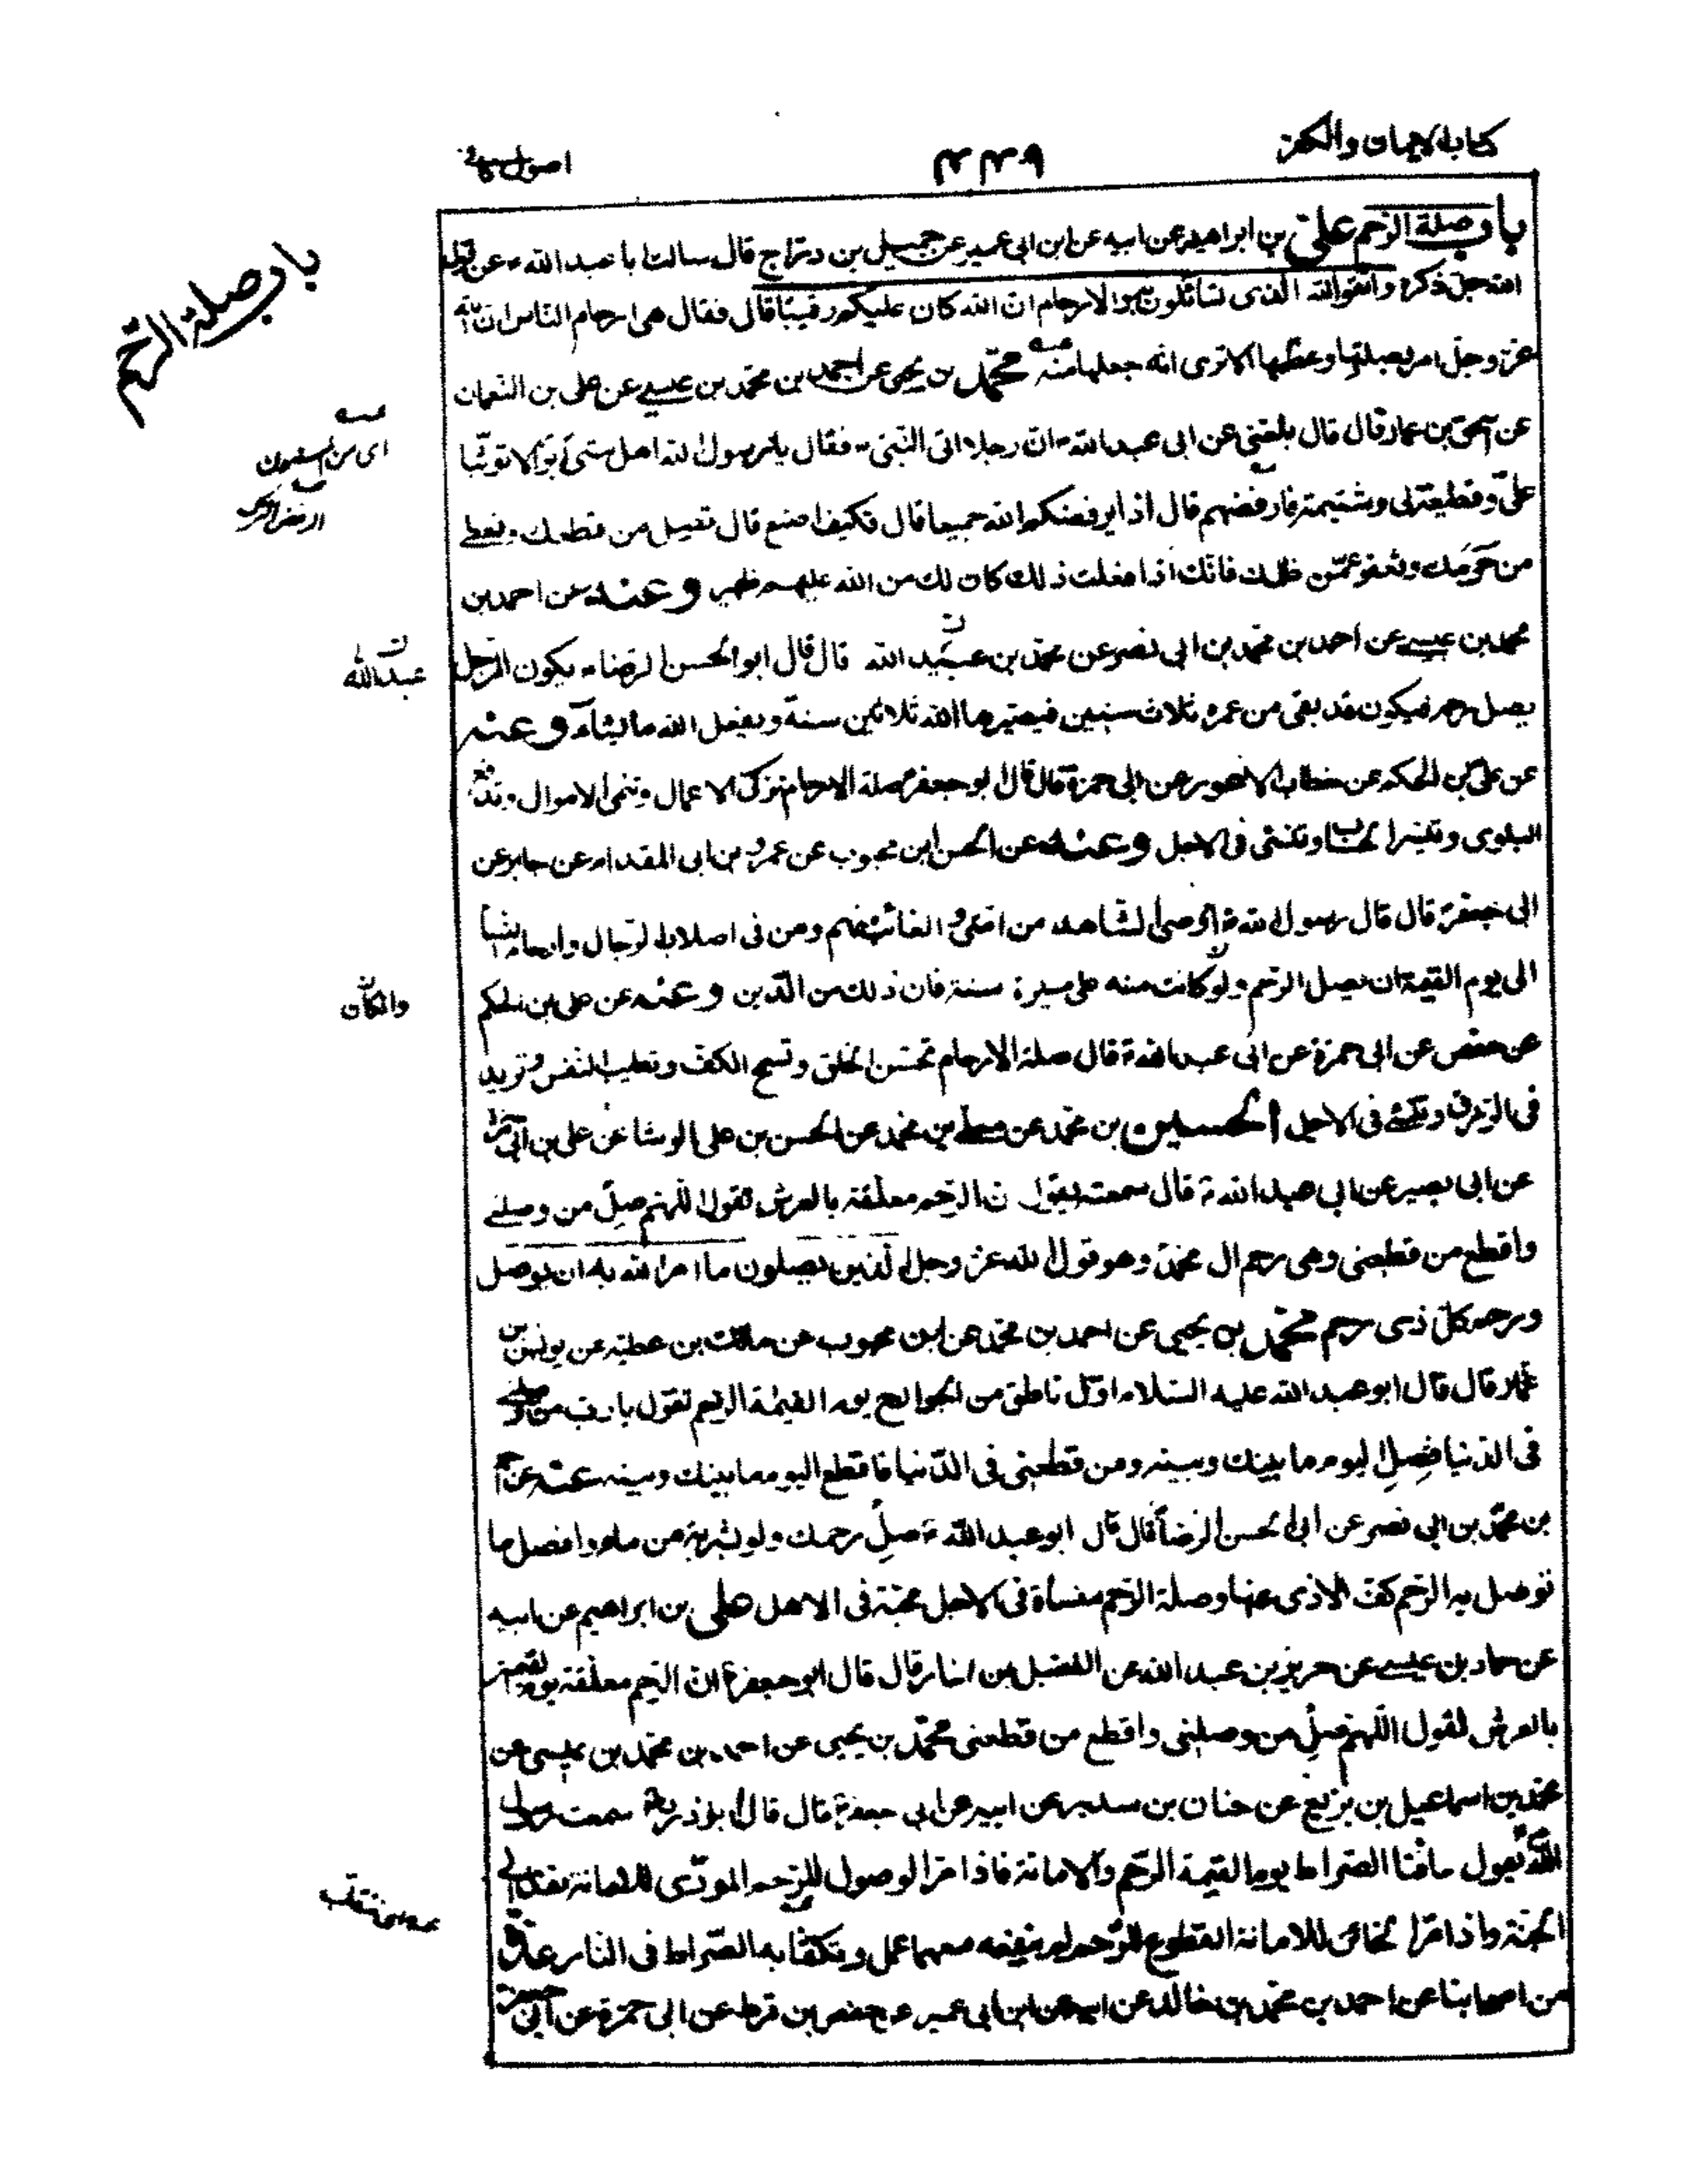 كتاب الايمان والكفر
اصول كافى
باب صلة الرحم على بن ابراهيم عن ابيه عن ابن ابى عمير عن جميل بن دراج قال سالت ابا عبد الله ع عن قول
الله جل ذكره واتقوا الله الذى تسائلون به والارحام ان الله كان عليكم رقيبا قال فقال هى ارحام الناس ان الله
عز وجل امر بصلتها وعظمها الا ترى انه جعلها منه محمد بن يحيى عن احمد بن محمد بن عيسى عن على بن النعمان
عن اسحق بن عمار قال قال بلغنى عن ابى عبد الله ع ان رجلا اتى النبى ص فقال يا رسول الله اهل بيتى ابوا الا توثبا
على وقطيعة لى وشتيمة فارفضهم قال اذا يرفضكم الله جميعا قال فكيف اصنع قال تصل من قطعك وتعطى
من حرمك وتعفو عمن ظلمك فانك اذا فعلت ذلك كان لك من الله عليهم ظهير وعنه عن احمد بن
محمد بن عيسى عن احمد بن محمد بن ابى نصر عن محمد بن عبيد الله قال قال ابو الحسن الرضا ع يكون الرجل
يصل رحمه فيكون قد بقى من عمره ثلاث سنين فيصيرها الله ثلاثين سنة ويفعل الله ما يشآء وعنه
عن على بن الحكم عن خطاب الاعور عن ابى حمزة قال قال ابو جعفر ع صلة الارحام تزكى الاعمال وتنمى الاموال وتدفع
البلوى وتيسر الحساب وتنسئ فى الاجل وعنه عن الحسن ابن محبوب عن عمرو بن ابى المقدام عن جابر عن
ابى جعفر ع قال قال رسول الله ص اوصى الشاهد من امتى والغائب منهم ومن فى اصلاب الرجال وارحام النسا
الى يوم القيمة ان يصل الرحم ولو كانت منه على مسيرة سنة فان ذلك من الدين وعنه عن على بن الحكم
عن حفص عن ابى حمزة عن ابى عبد الله ع قال صلة الارحام تحسن الخلق وتسمح الكف وتطيب النفس وتزيد
فى الرزق وتنسئ فى الاجل الحسين بن محمد عن معلى بن محمد عن الحسن بن على الوشا عن على بن ابى حمزة
عن ابى بصير عن ابى عبد الله ع قال سمعته يقول ان الرحم معلقة بالعرش تقول اللهم صل من وصلنى
واقطع من قطعنى وهى رحم ال محمد وهو قول الله عز وجل الذين يصلون ما امر الله به ان يوصل
ورحم كل ذى رحم محمد بن يحيى عن احمد بن محمد عن ابن محبوب عن مالك بن عطية عن يونس بن
عمار قال قال ابو عبد الله عليه السلام اول ناطق من الجوارح يوم القيمة الرحم تقول يا رب من وصلنى
فى الدنيا فصل اليوم ما بينك وبينه ومن قطعنى فى الدنيا فاقطع اليوم ما بينك وبينه عنه عن احمد
بن محمد بن ابى نصر عن ابى الحسن الرضا ع قال قال ابو عبد الله ع صل رحمك ولو بشربة من ماء وافضل ما
توصل به الرحم كف الاذى عنها وصلة الرحم منساة فى الاجل محببة فى الاهل على بن ابراهيم عن ابيه
عن حماد بن عيسى عن حريز بن عبد الله عن الفضيل بن يسار قال قال ابو جعفر ع ان الرحم معلقة يوم القيمة
بالعرش تقول اللهم صل من وصلنى واقطع من قطعنى محمد بن يحيى عن احمد بن محمد بن عيسى عن
محمد بن اسماعيل بن بزيع عن حنان بن سدير عن ابيه عن ابى جعفر ع قال قال ابو ذر رض سمعت رسول
الله ص يقول حافتا الصراط يوم القيمة الرحم والامانة فاذا مر الوصول للرحم المودى للامانة نفذ الى
الجنة واذا مر الخائن للامانة القطوع للرحم لم ينفعه معهما عمل وتكفأ به الصراط فى النار عدة
من اصحابنا عن احمد بن محمد بن خالد عن ابيه عن ابن ابى عمير عن حفص بن قرط عن ابى حمزة عن ابى جعفر
باب صلة الرحم
عبد الله
وان كان